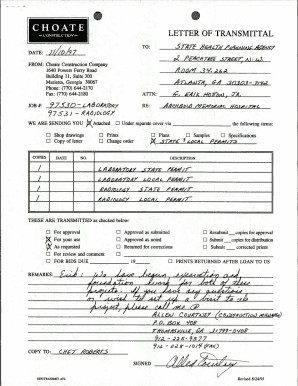 CHOATE
CONSTRUCTION
LETTER OF TRANSMITTAL
DATE: 11/10/97
TO: STATE HEALTH PLANNING AGENCY
2 PEACHTREE STREET, N.W.
ROOM 34.262
ATLANTA, GA 30303-3142
FROM: Choate Construction Company
1640 Powers Ferry Road
Building 11, Suite 300
Marietta, Georgia 30067
Phone: (770) 644-2170
Fax: (770) 644-2180
ATTN:
JOB # 97530-LABORATORY
97531-RADIOLOGY
RE: ARCHBOLD MEMORIAL HOSPITAL
WE ARE SENDING YOU Attached Under separate cover via the following items:
Shop drawings Prints Plans Samples Specifications
Copy of letter Change order STATE & LOCAL PERMITS
COPIES DATE NO. DESCRIPTION
1 LABORATORY STATE PERMIT
1 LABORATORY LOCAL PERMIT
1 RADIOLOGY STATE PERMIT
1 RADIOLOGY LOCAL PERMIT
THESE ARE TRANSMITTED as checked below:
For approval Approved as submitted Resubmit copies for approval
For your use Approved as noted Submit copies for distribution
As requested Returned for corrections Submit corrected prints
For review and comment
FOR BIDS DUE 19 PRINTS RETURNED AFTER LOAN TO US
REMARKS: Erik: We have begun excavation and
foundation work for both of these
projects. If you have any questions
or need to set up a visit to the
project, please call me @
ALLEN COURTNEY (CONSTRUCTION MANAGER)
P.O. BOX 408
THOMASVILLE, GA 31799-0408
912-228-9877
912-228-1019 (FAX)
COPY TO: CHET ROBERTS
SIGNED Allen Courtney